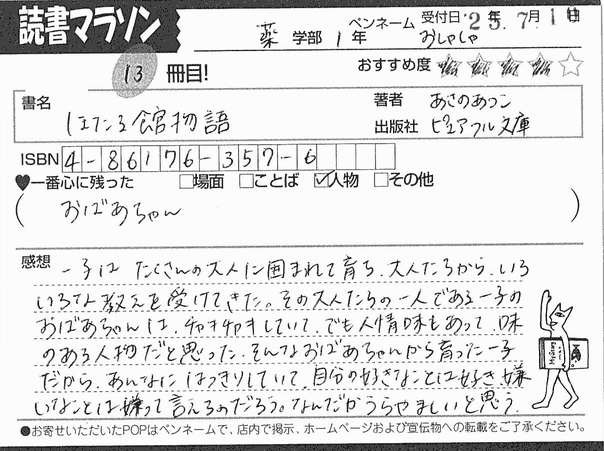 読書マラソン
受付日 '25.7月1日
薬 学部 1年 ペンネーム おしゃしゃ
13 冊目!
おすすめ度 ★★★★☆
書名 ほたる館物語
著者 あさのあつこ
出版社 ピュアフル文庫
ISBN 4-86176-357-6
♥一番心に残った □場面 □ことば ☑人物 □その他
(おばあちゃん)
感想
一子は たくさんの大人に囲まれて育ち、大人たちから、いろ
いろな教えを受けてきた。その大人たちの一人である一子の
おばあちゃんは、チャキチャキしていて、でも人情味もあって、味
のある人物だと思った。そんなおばあちゃんから育った一子
だから、あんなに はっきりしていて、自分の好きなことは好き、嫌
いなことは嫌って言えるのだろう。なんだかうらやましいと思う。
●お寄せいただいたPOPはペンネームで、店内で掲示、ホームページおよび宣伝物への転載をご了承ください。